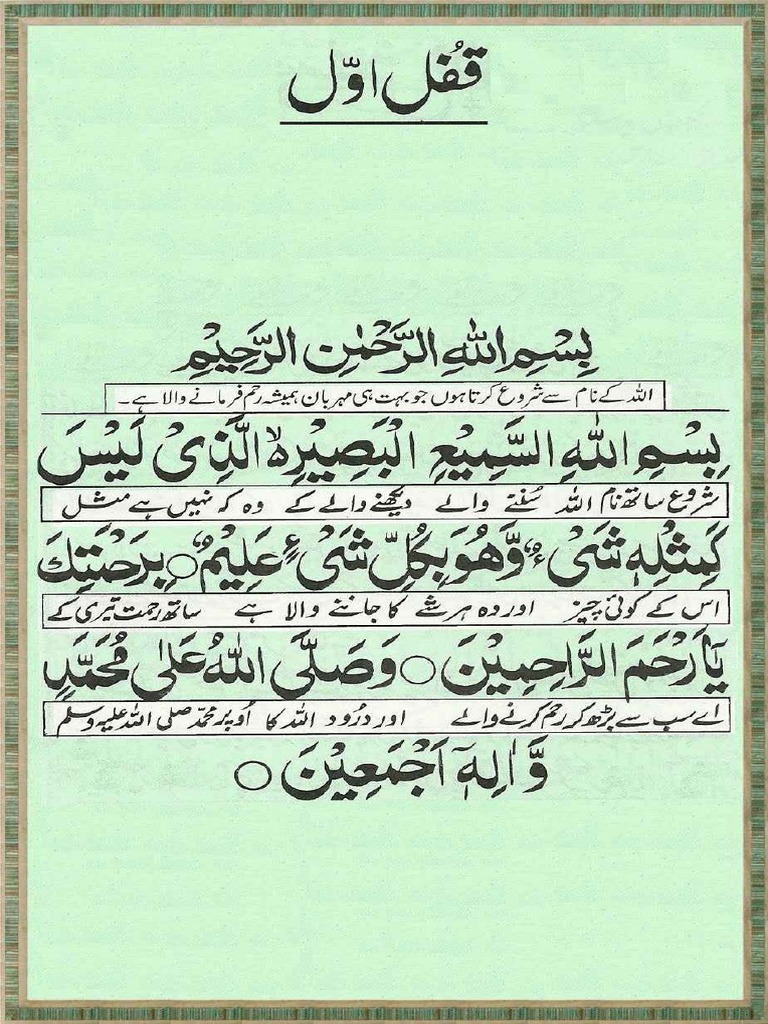 قُفل اوّل
بِسْمِ اللّٰهِ الرَّحْمٰنِ الرَّحِيْمِ
اللہ کے نام سے شروع کرتا ہوں جو بہت ہی مہربان ہمیشہ رحم فرمانے والا ہے۔
بِسْمِ اللّٰهِ السَّمِيْعِ الْبَصِيْرِهِ لا الَّذِىْ لَيْسَ
شروع ساتھ نام اللہ سُننے والے دیکھنے والے کے وہ کہ نہیں ہے مثل
كَمِثْلِهٖ شَىْءٌ ؕ وَّهُوَ بِكُلِّ شَىْءٍ عَلِيْمٌ ○ بِرَحْمَتِكَ
اس کے کوئی چیز اور وہ ہر شے کا جاننے والا ہے ساتھ رحمت تیری کے
يَآ اَرْحَمَ الرَّاحِمِيْنَ ○ وَصَلَّى اللّٰهُ عَلٰى مُحَمَّدٍ
اے سب سے بڑھ کر رحم کرنے والے اور درُود اللہ کا اُوپر محمّد صلی اللہ علیہ وسلم
وَّاٰلِهٖٓ اَجْمَعِيْنَ ○